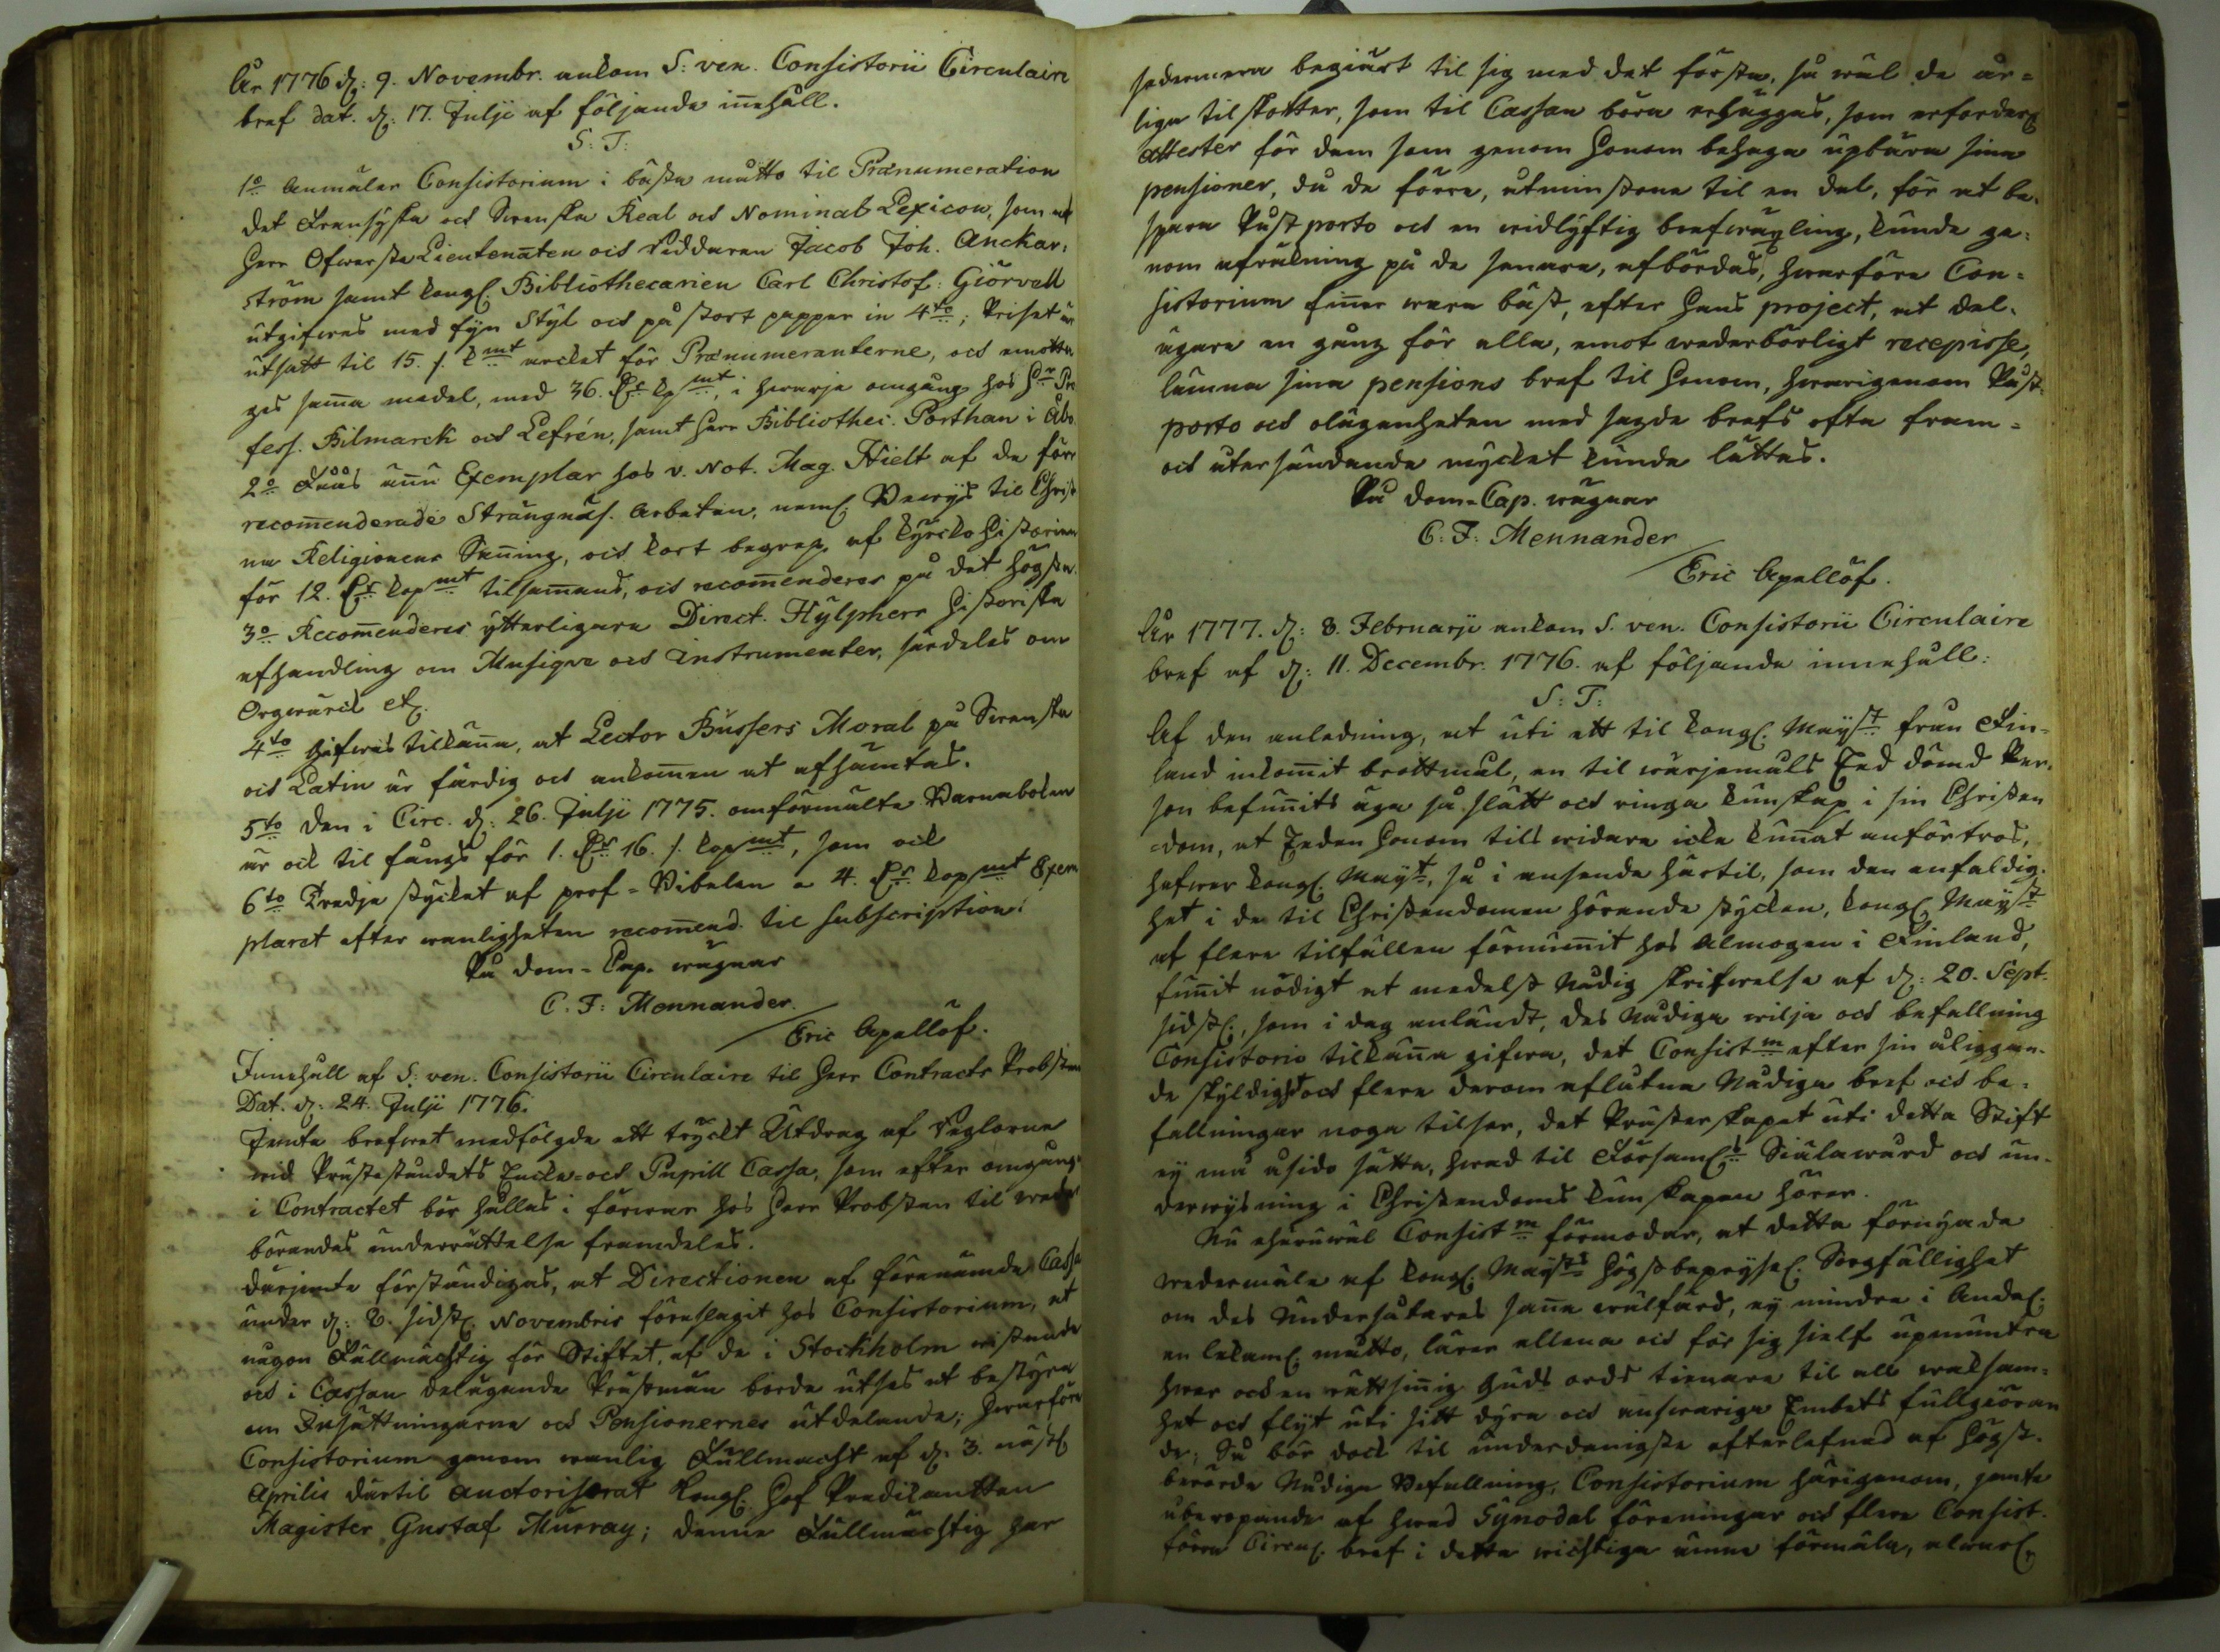 År 1776 d: 9. Novembr. ankom S: ven. Consistorii Circulaire
bref dat. d: 17. Julji af följande inehåll.
S: T:
1o Anmäler Consistorium i bästa måtto til Prænumeration
det Fransyska och Swenska Real och Nominal Lexicon, som af
Herr Öfwerste Lieutenaten och Riddaren Jacob Joh. Anckar-
ström samt kongl. Bibliothecarien Carl Christof: Giörvell
utgifwes med fyn Styl och på stort papper in 4to; Priset är
utsatt til 15. s. kmt arcket för Prænumeranterne, och emotta
ges sama medel, med 36. dr kpmt, i hwarje omgång hos Hr Pro
fess. Bilmarck och Lefrén, samt Herr Bibliothec. Porthan i Åbo
2o Fåås änu Exemplar hos v. Not. Mag. Hielt af de förr
recomenderade Strängnäs. Arbeten, neml. Bewys til Christ
na Religionens Saning, och kort begrep af kyrckohistorien
för 12. dr kopmt tilsamans, och recomenderes på det högsta.
3o Recomenderes ytterligare Direct. Hülphers historiska
afhandling om Musique och instrumenter, särdeles om
Orgwärck etc.
4to Gifwes tilkäna, at Lector Büssers Moral på Swenska
och Latin är färdig och ankomen at afhämtas.
5to Den i Circ. d: 26. Julji 1775. omförmälte Barnaboken
är ock til fångs för 1. dr 16. s. kopmt, som ock
6to Tredje stycket af prof-Bibelen a 4. dr kopmt Exem
plaret efter wanligheten recomend. til subscription.
På Dom-Cap. wägnar
C. F: Mennander.
Eric Apellöf.
Innehåll af S: ven. Consistorii Circulaire til Herr Contracts Probsten
Dat. d: 24. Julji 1776.
Jemte brefwet medfölgde ett tryckt Utdrag af Reglorne
wid Prästeståndets Enke- och Pupill Cassa, som efter omgång
i Contractet bör hållas i förwar hos Herr Probsten til weder
börandes underrättelse framdeles.
Därjemte förständigas, at Directionen af förenämde Cassa
under d: 8. sidstl. Novembris föreslagit hos Consistorium, at
någon Fullmächtig för Stiftet, af de i Stockholm wistande
och i Cassan delägande Prästmän borde utses at bestyra
om Insättningarne och Pensionernes utdelande; hwarföre
Consistorium genom wanlig Fullmacht af d. 3. nästl.
Aprilis därtil auctoriserat Kongl. Hof Predikanten
Magister Gustaf Murray; denne Fullmächtig har
sedermera begiärt til sig med det första, så wäl de år-
liga tilskotter, som til Cassan böra erläggas, som erforderl.
attester för dem som genom Honom behaga upbära sina
pensioner, då de förre, åtminstone til en del, för at be-
spara Påst porto och en widlyftig brefwäxling, kunde ge-
nom afräkning på de senare, afbördas, hwarföre Con-
sistorium finer wara bäst, efter hans project, at del-
ägare en gång för alla, emot wederbörligt recepisse,
lämna sina pensions bref til Honom, hwarigenom Påst-
porto och olägenheten med sagde brefs ofta fram-
och återsändande mycket kunde lättas.
På Dom-Cap. wägnar
C: F: Mennander
Eric Apellöf.
År 1777. d: 8. Februarji ankom S. ven. Consistorii Circulaire
bref af d: 11. Decembr. 1776. af följande innehåll:
S: T:
Af den anledning, at uti ett til kongl. Mayst från Fin-
land inkomit brottmål, en til wärjemåls Eed dömd Per-
son befunits äga så slätt och ringa kunskap i sin Christen
-dom, at Eeden honom tils widare icke kunat anförtros,
hafwer kongl. Mayt, så i anseende härtil, som den enfaldig-
het i de til Christendomen hörande stycken, kongl. Mayst
af flere tilfällen förnumit hos Almogen i Finland,
funit nödigt at medelst Nådig skrifwelse af d: 20. Sept.
sidstl., som i dag anländt, des Nådiga wilja och befallning
Consistorio tilkäna gifwa, det Consistm efter sin åliggan-
de skyldight och flere derom aflåtne Nådiga bref och be-
fallningar noga tilser, det Prästerskapet uti detta Stift
ej må åsido sätta, hwad til Församl:s Siälawård och un-
derwysning i Christendoms kunskapen hörer.
Nu ehuruwäl Consistm förmodar, at detta förnyade
wedermäle af kongl. Maysts högstberyml. Sorgfällighet
om des Undersåtares sana wälfärd, ej mindre i Andel.
än lekaml. måtto, lärer allena och för sig sielf upmuntra
hwar och en rättsinig Guds ords tienare til all waksam-
het och flyt uti sitt dyra och answariga Embets fullgiöran
de; Så bör dock til underdånigste efterlefnad af högst-
berörde Nådige Befallning, Consistorium härigenom, jemte
åberopande af hwad Synodal föreningar och flere Consist.
förra Circul. bref i detta wichtiga ämne förmäla, alwarl.